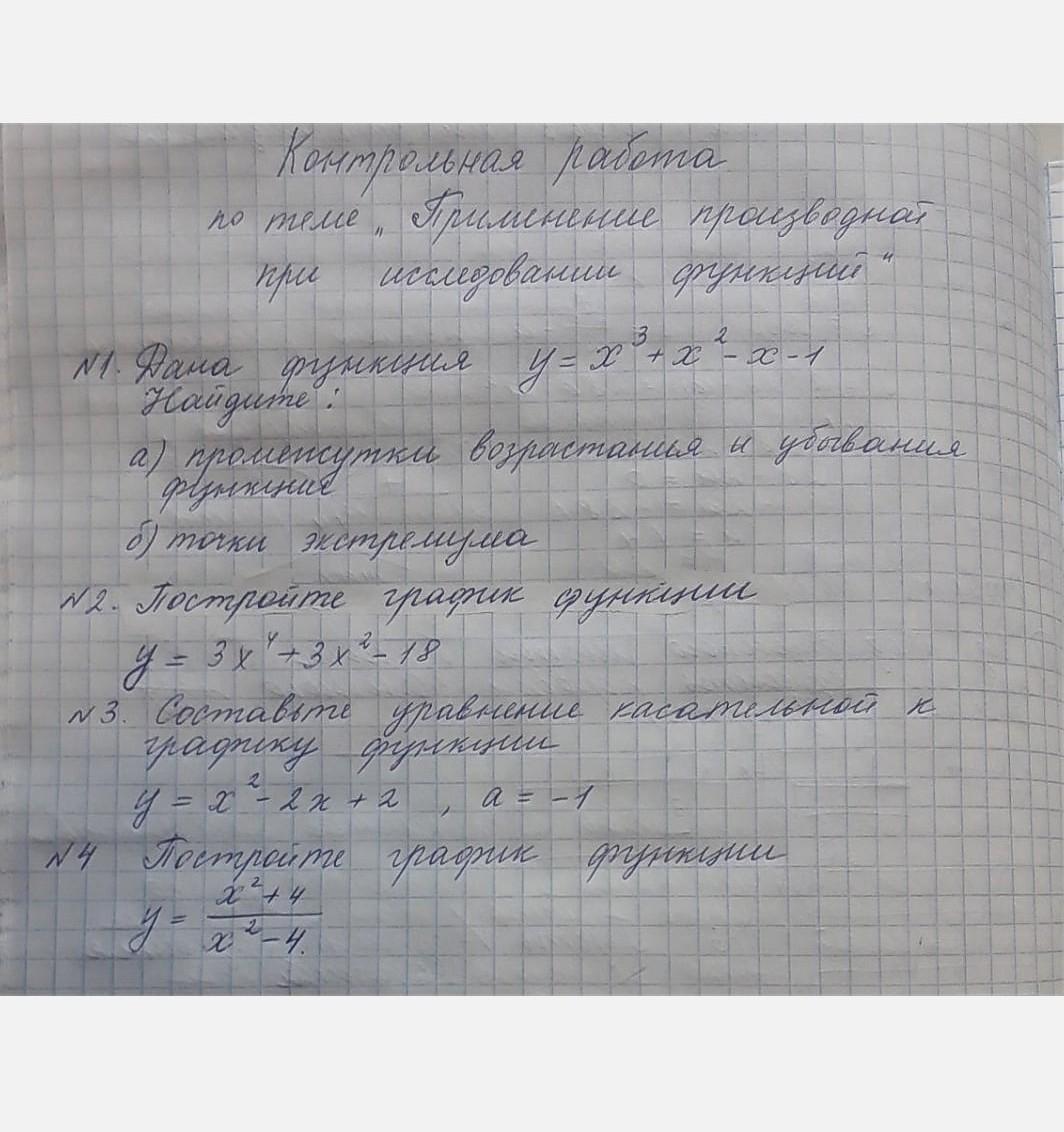 Контрольная работа
по теме „Применение производной
при исследовании функций“
№1. Дана функция y = x³ + x² - x - 1
Найдите:
а) промежутки возрастания и убывания
функции
б) точки экстремума
№2. Постройте график функции
y = 3x⁴ + 3x² - 18
№3. Составьте уравнение касательной к
графику функции
y = x² - 2x + 2 , a = -1
№4 Постройте график функции
y = (x² + 4)/(x² - 4).